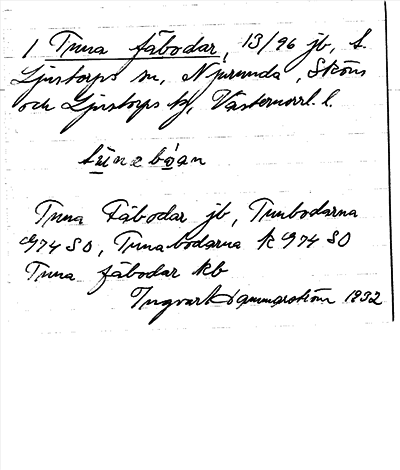 1 Tuna fäbodar, 13/96 jb, s.
Ljustorps sn, Njurunda, Sköns
och Ljustorps td, Västernorrl. l.
Tuna Fäbodar jb, Tunbodarna
G74 SO, Tunabodarna k G74 SO
Tuna fäbodar kb
Ingvar Hammarström 1932